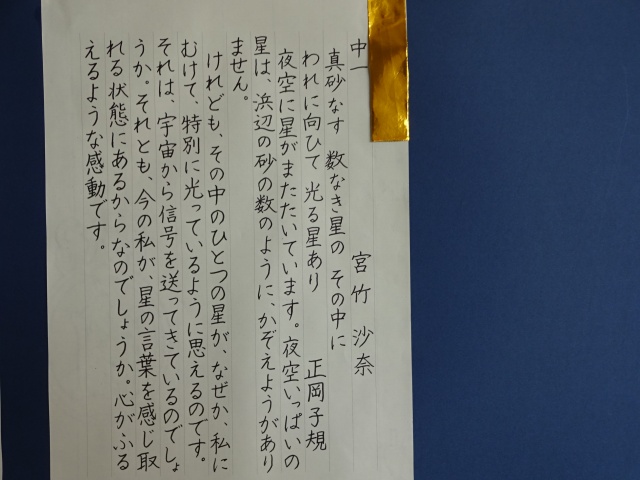 中一　宮竹　沙奈
真砂なす　数なき星の　その中に
われに向ひて　光る星あり　正岡子規
夜空に星がまたたいています。夜空いっぱいの
星は、浜辺の砂の数のように、かぞえようがあり
ません。
けれども、その中のひとつの星が、なぜか、私に
むけて、特別に光っているように思えるのです。
それは、宇宙から信号を送ってきているのでしょ
うか。それとも、今の私が、星の言葉を感じ取
れる状態にあるからなのでしょうか。心がふる
えるような感動です。